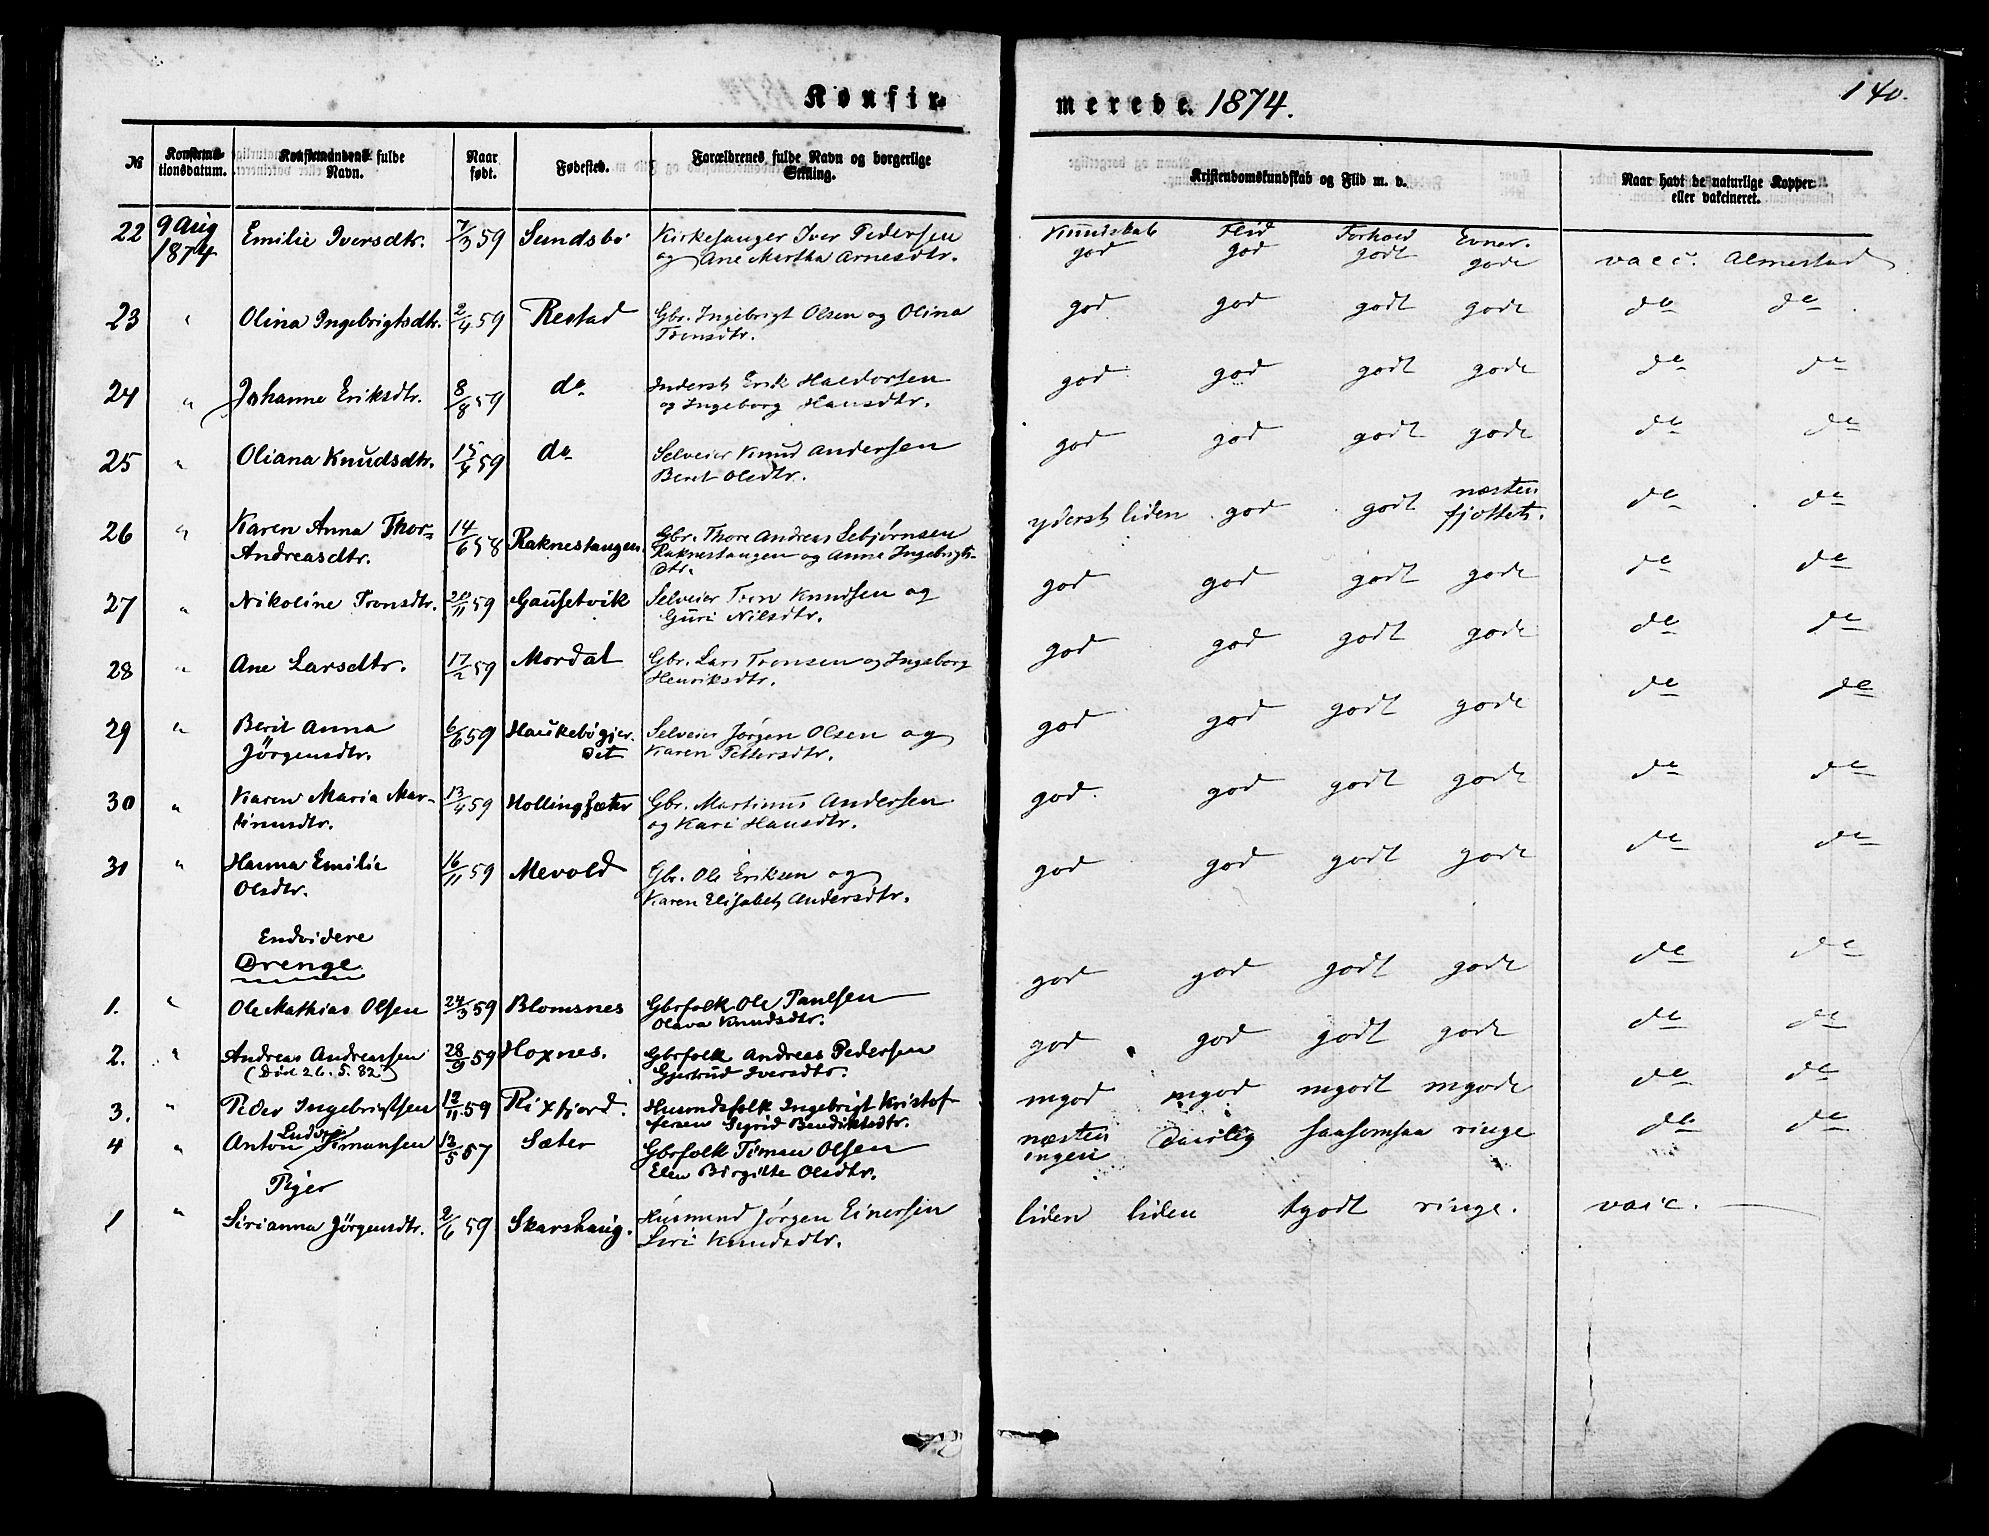 Konfir-
merede. 1874.
140.
№
Konfirma-
tionsdatum.
Konfirmandens fulde
Navn.
Naar
født.
Fødested.
Forældrenes fulde Navn og borgerlige
Stilling.
Kristendomskundskab og Flid m. v.
Naar havt de naturlige Kopper
eller vakcineret.
22 9 Aug Emilie Iversdtr. 7/3 59 Sundsbø Kirkesanger Iver Pedersen Kundskab Flid Forhold Evner.
1874 og Ane Martha Arnesdtr. god god godt gode vacc. Almestad
23 " Olina Ingebrigtsdtr. 2/4 59 Restad Gbr. Ingebrigt Olsen og Olina god god godt gode do do
Tronsdtr.
24 " Johanne Eriksdtr. 8/8 59 do Inderst Erik Haldorsen god god godt gode do do
og Ingeborg Hansdtr.
25 " Oliana Knudsdtr. 15/4 59 do Selveier Knud Andersen god god godt gode do do
Berit Olsdtr.
26 " Karen Anna Thor- 14/6 58 Raknestangen Gbr. Thore Andreas Sebjørnsen yderst liden god godt næsten do do
Andreasdtr. Raknestangen og Anne Ingebrigts- fjottet.
dtr.
27 " Nikoline Tronsdtr. 20/11 59 Gausetvik Selveier Tron Knudsen og god god godt gode do do
Guri Nilsdtr.
28 " Ane Larsdtr. 17/2 59 Mordal Gbr. Lars Tronsen og Ingeborg god god godt gode do do
Henriksdtr.
29 " Berit Anna 6/6 59 Haukebøgjer- Selveier Jørgen Olsen og god god godt gode do do
Jörgensdtr. det Karen Pettersdtr.
30 " Karen Maria Mar- 13/4 59 Hollingsæter Gbr. Martinus Andersen god god godt gode do do
tinusdtr. og Kari Hansdtr.
31 " Hanna Emilie 16/11 59 Mevold Gbr. Ole Eriksen og god god godt gode do do
Olsdtr. Karen Elisabeth Andersdtr.
Endvidere
Drenge
1. " Ole Mathias Olsen 24/3 59 Blomsnes Gbrfolk Ole Paulsen god god godt gode do do
Olava Knudsdtr.
2. " Andreas Andreassen 28/9 59 Hoxnes. Gbrfolk Andreas Pedersen god god godt gode do do
(Død 26. 5. 82) Gjertrud Iversdtr.
3. " Peder Ingebrigtsen 12/11 59 Rixfjord. Husmdsfolk Ingebrigt Kristof- mgod mgod mgodt mgode do do
fersen Sigrid Bendiktsdtr.
Ludvig
4 " Anton Timansen 13/5 57 Sæter Gbrfolk Timan Olsen næsten Daarlig saasomsaa ringe do do
Elen Birgitte Olsdtr. ingen
Piger
1 " Sirianna Jörgensdtr. 2/6 59 Skarshaug. Husmand Jørgen Einersen liden liden tgodt ringe. vacc.
Siri Knudsdtr.